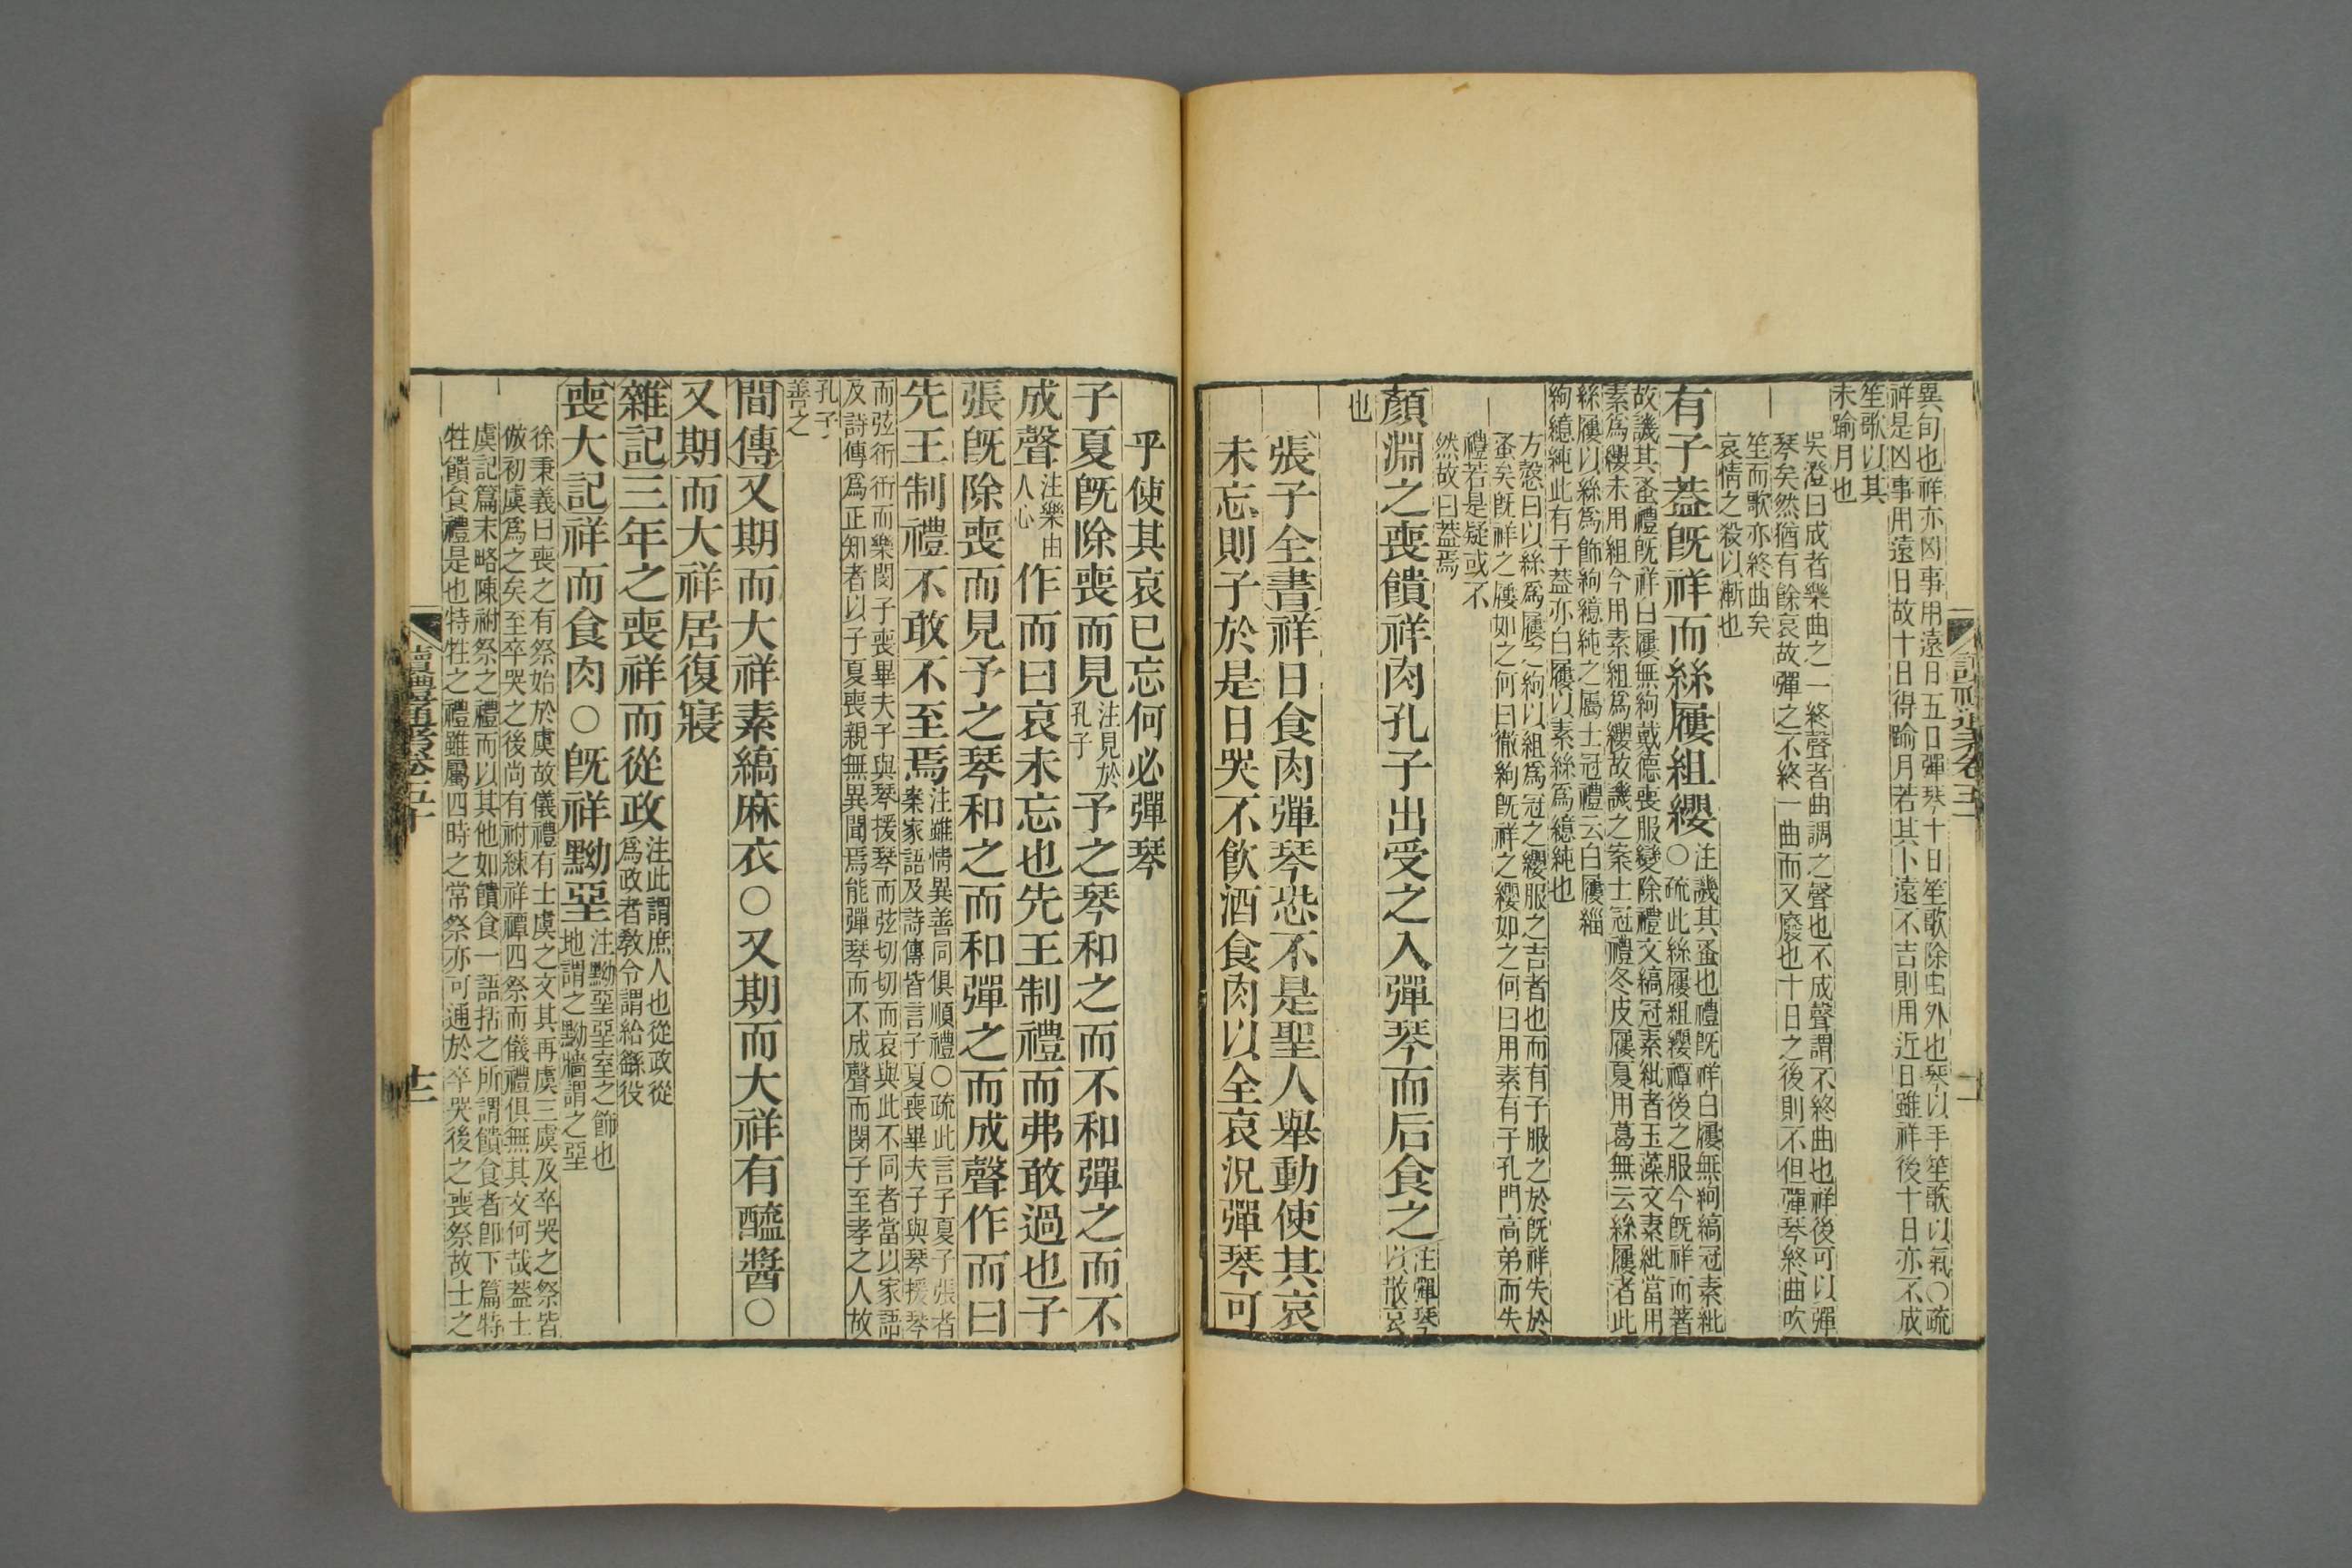 異旬也祥亦凶事用遠日五日彈琴十日笙歌除由外也琴以手笙歌以氣○疏
祥是凶事用遠日故十日得踰月若其卜遠不吉則用近日雖祥後十日亦不成
笙歌以其
未踰月也
吳澄曰成者樂曲之一終聲者曲調之聲也不成聲謂不終曲也祥後可以彈
琴矣然猶有餘哀故彈之不終一曲而又廢也十日之後則不但彈琴終曲吹
笙而歌亦終曲矣
哀情之殺以漸也
有子蓋旣祥而絲屨組纓○注譏其蚤也禮旣祥白屨無絇縞冠素紕
疏此絲屨組纓禫後之服今旣祥而著
故譏其蚤禮旣祥白屨無絇戴德喪服變除禮文縞冠素紕者玉藻文素紕當用
素爲纓未用組今用素組爲纓故譏之案士冠禮冬皮屨夏用葛無云絲屨者此
絲屨以絲爲飾絇繶純之屬士冠禮云白屨緇
絇繶純此有子蓋亦白屨以素絲爲繶純也
方慤曰以絲爲屨之絇以組爲冠之纓服之吉者也而有子服之於旣祥失於
蚤矣旣祥之屨如之何曰徹絇旣祥之纓如之何曰用素有子孔門高弟而失
禮若是疑或不
然故曰蓋焉
顏淵之喪饋祥肉孔子出受之入彈琴而后食之注彈琴
以散哀
也
張子全書祥日食肉彈琴恐不是聖人舉動使其哀
未忘則子於是日哭不飮酒食肉以全哀況彈琴可
乎使其哀已忘何必彈琴
子夏旣除喪而見注見於孔子予之琴和之而不和彈之而不
成聲注樂由人心作而曰哀未忘也先王制禮而弗敢過也子
張旣除喪而見予之琴和之而和彈之而成聲作而曰
先王制禮不敢不至焉注雖情異善同俱順禮○疏此言子夏子張者
案家語及詩傳皆言子夏喪畢夫子與琴援琴
而弦衎衎而樂閔子喪畢夫子與琴援琴而弦切切而哀與此不同者當以家語
及詩傳爲正知者以子夏喪親無異聞焉能彈琴而不成聲而閔子至孝之人故
孔子
善之
間傳又期而大祥素縞麻衣○又期而大祥有醯醬○
又期而大祥居復寢
雜記三年之喪祥而從政注此謂庶人也從政從
爲政者敎令謂給繇役
喪大記祥而食肉○旣祥黝堊注黝堊堊室之飾也
地謂之黝牆謂之堊
徐秉義曰喪之有祭始於虞故儀禮有士虞之文其再虞三虞及卒哭之祭皆
倣初虞爲之矣至卒哭之後尚有祔練祥禫四祭而儀禮俱無其文何哉蓋士
虞記篇末略陳祔祭之禮而以其他如饋食一語括之所謂饋食者卽下篇特
牲饋食禮是也特牲之禮雖屬四時之常祭亦可通於卒哭後之喪祭故士之